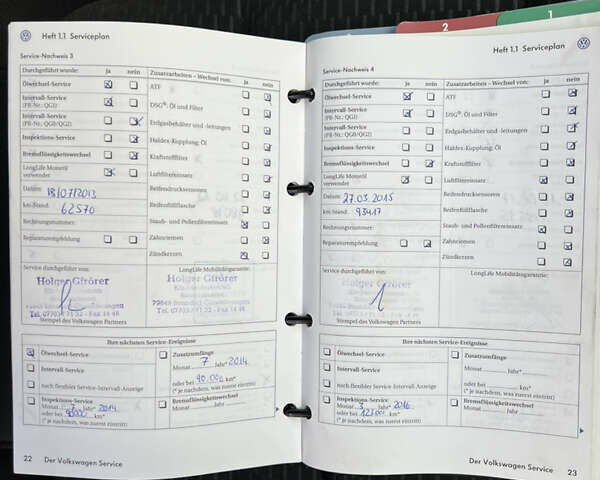 Heft 1.1 Serviceplan
Service-Nachweis 3
Durchgeführt wurde: Ja nein
Ölwechsel-Service
Intervall-Service
(PR-Nr.: QG1)
Intervall-Service
(PR-Nr.: QG0/QG2)
Inspektions-Service
Bremsflüssigkeitswechsel
LongLife Motoröl
verwendet
Datum: 18/07/2013
km-Stand: 62570
Rechnungsnummer:
Reparaturempfehlung
Zusatzarbeiten - Wechsel von: Ja nein
ATF
DSG®: Öl und Filter
Erdgasbehälter und -leitungen
Haldex-Kupplung: Öl
Kraftstofffilter
Luftfiltereinsatz
Reifendrucksensoren
Reifenfüllflasche
Staub- und Pollenfiltereinsatz
Zahnriemen
Zündkerzen
Service durchgeführt von:
Holger Gfrörer
Stempel des Volkswagen Partners
LongLife Mobilitätsgarantie:
Holger Gfrörer
Ihre nächsten Service-Ereignisse
Ölwechsel-Service
Intervall-Service
nach flexibler Service-Intervall-Anzeige
Inspektions-Service
Monat 7 Jahr* 2014
oder bei 90000 km*
(* je nachdem, was zuerst eintritt)
Zusatzumfänge
Monat 7 Jahr* 2014
oder bei 90.000 km*
(* je nachdem, was zuerst eintritt)
Bremsflüssigkeitswechsel
Monat Jahr
22 Der Volkswagen Service
2
1
Heft 1.1 Serviceplan
Service-Nachweis 4
Durchgeführt wurde: Ja nein
Ölwechsel-Service
Intervall-Service
(PR-Nr.: QG1)
Intervall-Service
(PR-Nr.: QG0/QG2)
Inspektions-Service
Bremsflüssigkeitswechsel
LongLife Motoröl
verwendet
Datum: 27.03.2015
km-Stand: 93417
Rechnungsnummer:
Reparaturempfehlung
Zusatzarbeiten - Wechsel von: Ja nein
ATF
DSG®: Öl und Filter
Erdgasbehälter und -leitungen
Haldex-Kupplung: Öl
Kraftstofffilter
Luftfiltereinsatz
Reifendrucksensoren
Reifenfüllflasche
Staub- und Pollenfiltereinsatz
Zahnriemen
Zündkerzen
Service durchgeführt von:
Stempel des Volkswagen Partners
LongLife Mobilitätsgarantie:
Ihre nächsten Service-Ereignisse
Ölwechsel-Service
Intervall-Service
nach flexibler Service-Intervall-Anzeige
Inspektions-Service
Monat 3 Jahr* 2016
oder bei 123000 km*
(* je nachdem, was zuerst eintritt)
Zusatzumfänge
Monat Jahr*
oder bei km*
(* je nachdem, was zuerst eintritt)
Bremsflüssigkeitswechsel
Monat Jahr
Der Volkswagen Service 23